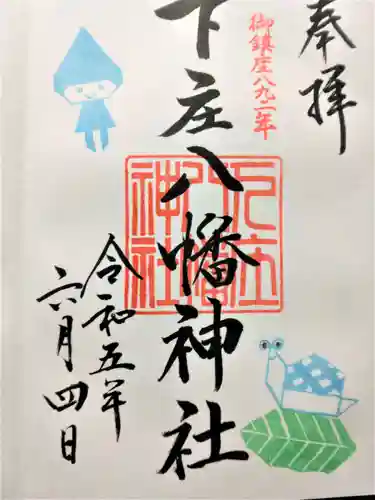 奉拝
御鎮座八九二年
下庄八幡神社
下庄八幡神社
令和五年
六月四日